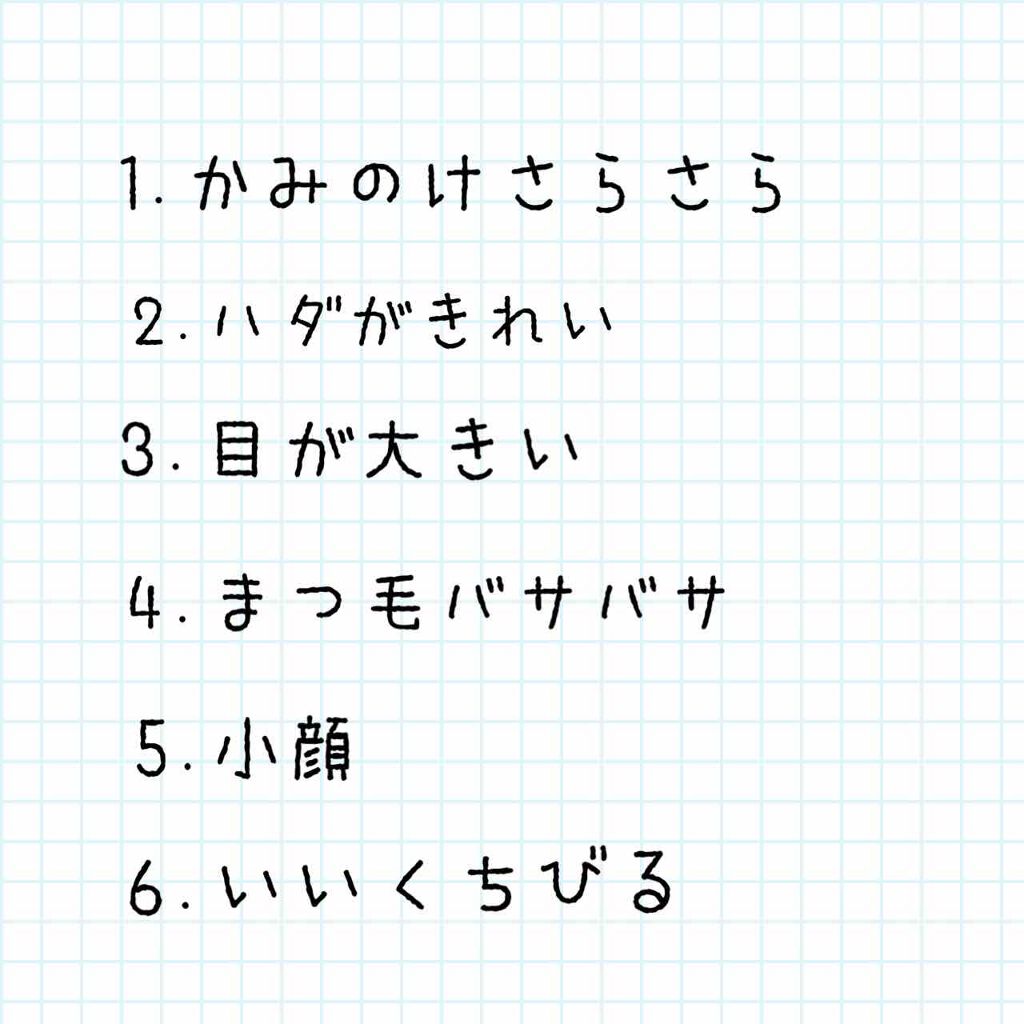 1.かみのけさらさら
2.ハダがきれい
3.目が大きい
4.まつ毛バサバサ
5.小顔
6.いいくちびる